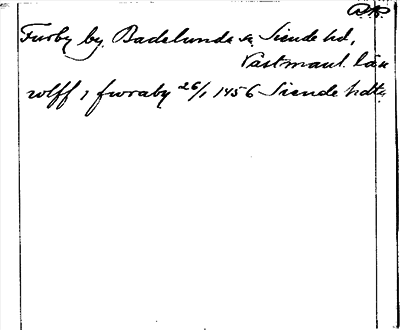 D.A.
Furby by, Badelunda sn, Siende hd,
Västmanl. län
wlff i fwraby 26/1 1456 Siende hdts